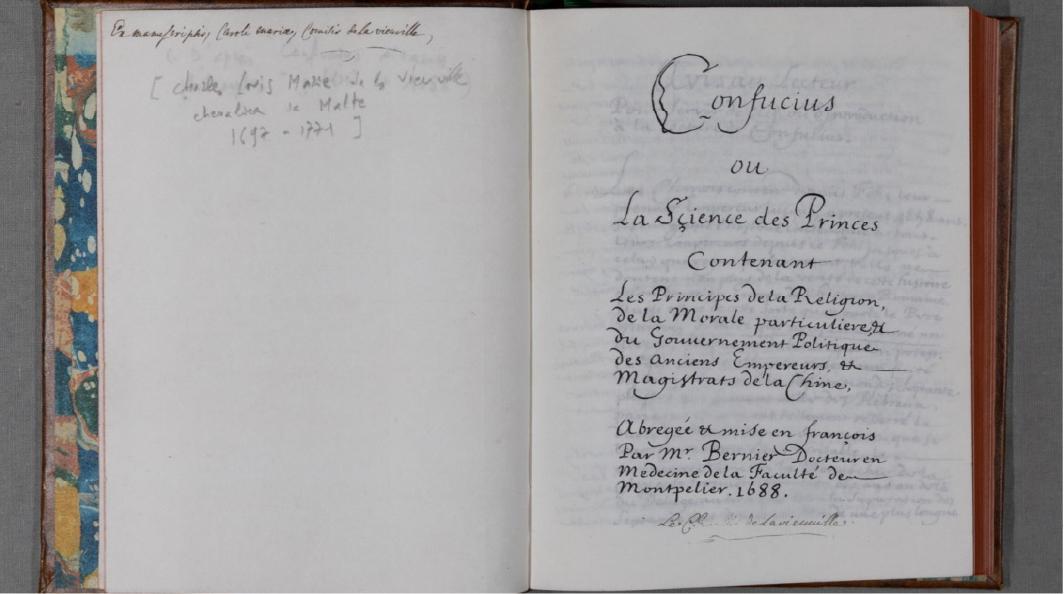 Ex manuscriptis, Caroli mariæ, Comitis de la vieuville,
[ Charles Louis Marie de la Vieuville
chevalier de Malte
1697 - 1771 ]
Confucius
ou
La Sçience des Princes
Contenant
Les Principes de la Religion,
de la Morale particuliere, &
du Gouvernement Politique
des Anciens Empereurs, &
Magistrats de la Chine,
Abregée & mise en françois
Par Mr. Bernier Docteur en
Medecine de la Faculté de
Montpelier. 1688.
de Lavieuville.